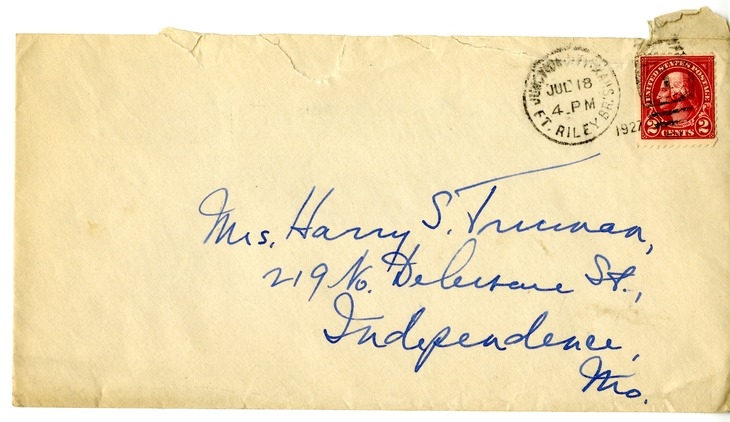 JUNCTION CITY, KANS.
JUL 18
4-PM
FT. RILEY BR.
1927
UNITED STATES POSTAGE
2 CENTS 2
Mrs. Harry S. Truman,
219 No. Delaware St.,
Independence,
Mo.